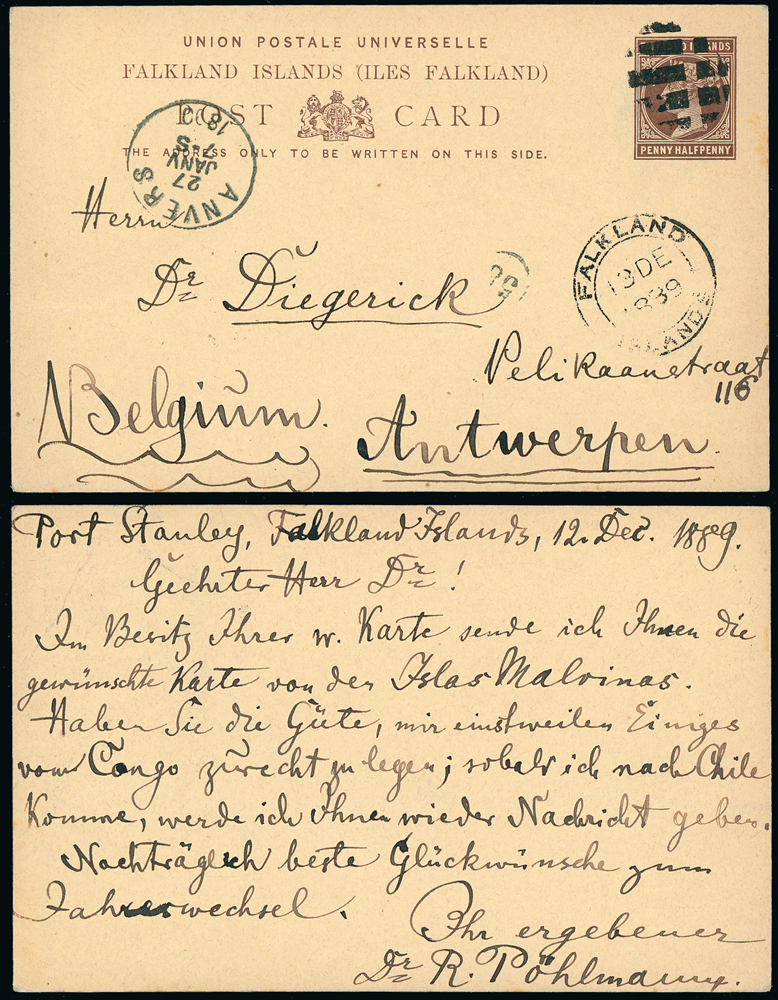 UNION POSTALE UNIVERSELLE
FALKLAND ISLANDS (ILES FALKLAND)
POST CARD
THE ADDRESS ONLY TO BE WRITTEN ON THIS SIDE.
ISLANDS
PENNY HALFPENNY
ANVERS
27 JANV
7-S
18
FALKLAND
13 DE
1889
ISLANDS
Herrn
Dr Diegerick
Pelikaanstraat
116
Belgium.
Antwerpen.
Port Stanley, Falkland Islands, 12. Dec. 1889.
Geehrter Herr Dr!
Im Besitz Ihrer w. Karte sende ich Ihnen die
gewünschte Karte von den Islas Malvinas.
Haben Sie die Güte, mir einstweilen Einiges
vom Congo zurecht zu legen; sobald ich nach Chile
komme, werde ich Ihnen wieder Nachricht geben.
Nachträglich beste Glückwünsche zum
Jahreswechsel.
Ihr ergebener
Dr R. Pöhlmann.